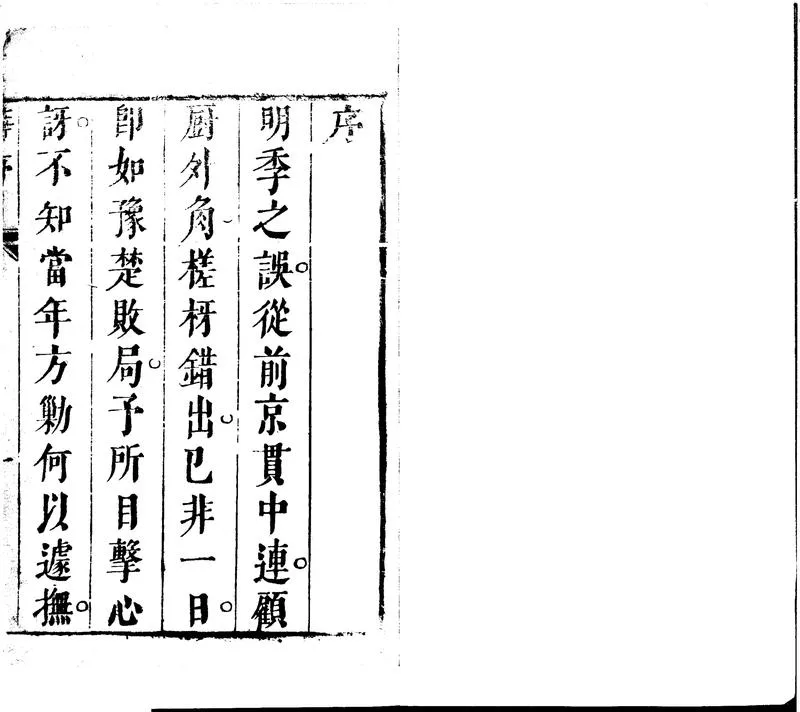 序
明季之誤從前京貫中連顧
厨外角槎枒錯出已非一日
卽如豫楚敗局予所目擊心
訝不知當年方勦何以遽撫
序